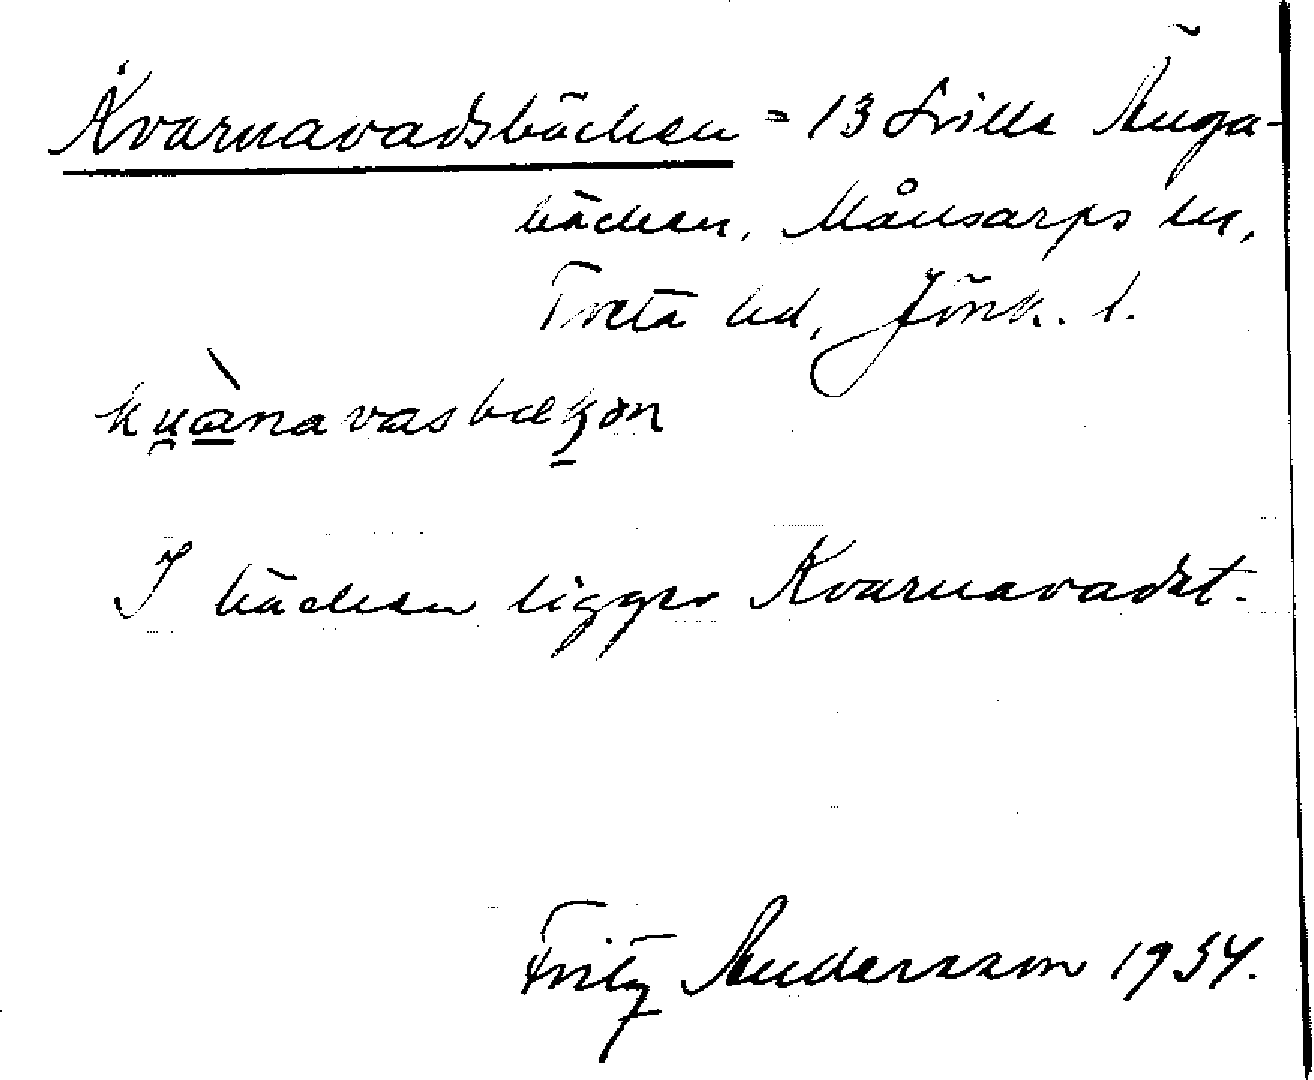 Kvarnavadsbäcken = 13 Lilla Änga-
bäcken, Månsarps sn,
Tveta hd, Jönk. l.
ku̯ànavasbækən
I bäcken ligger Kvarnavadet.
Fritz Andersson 1934.